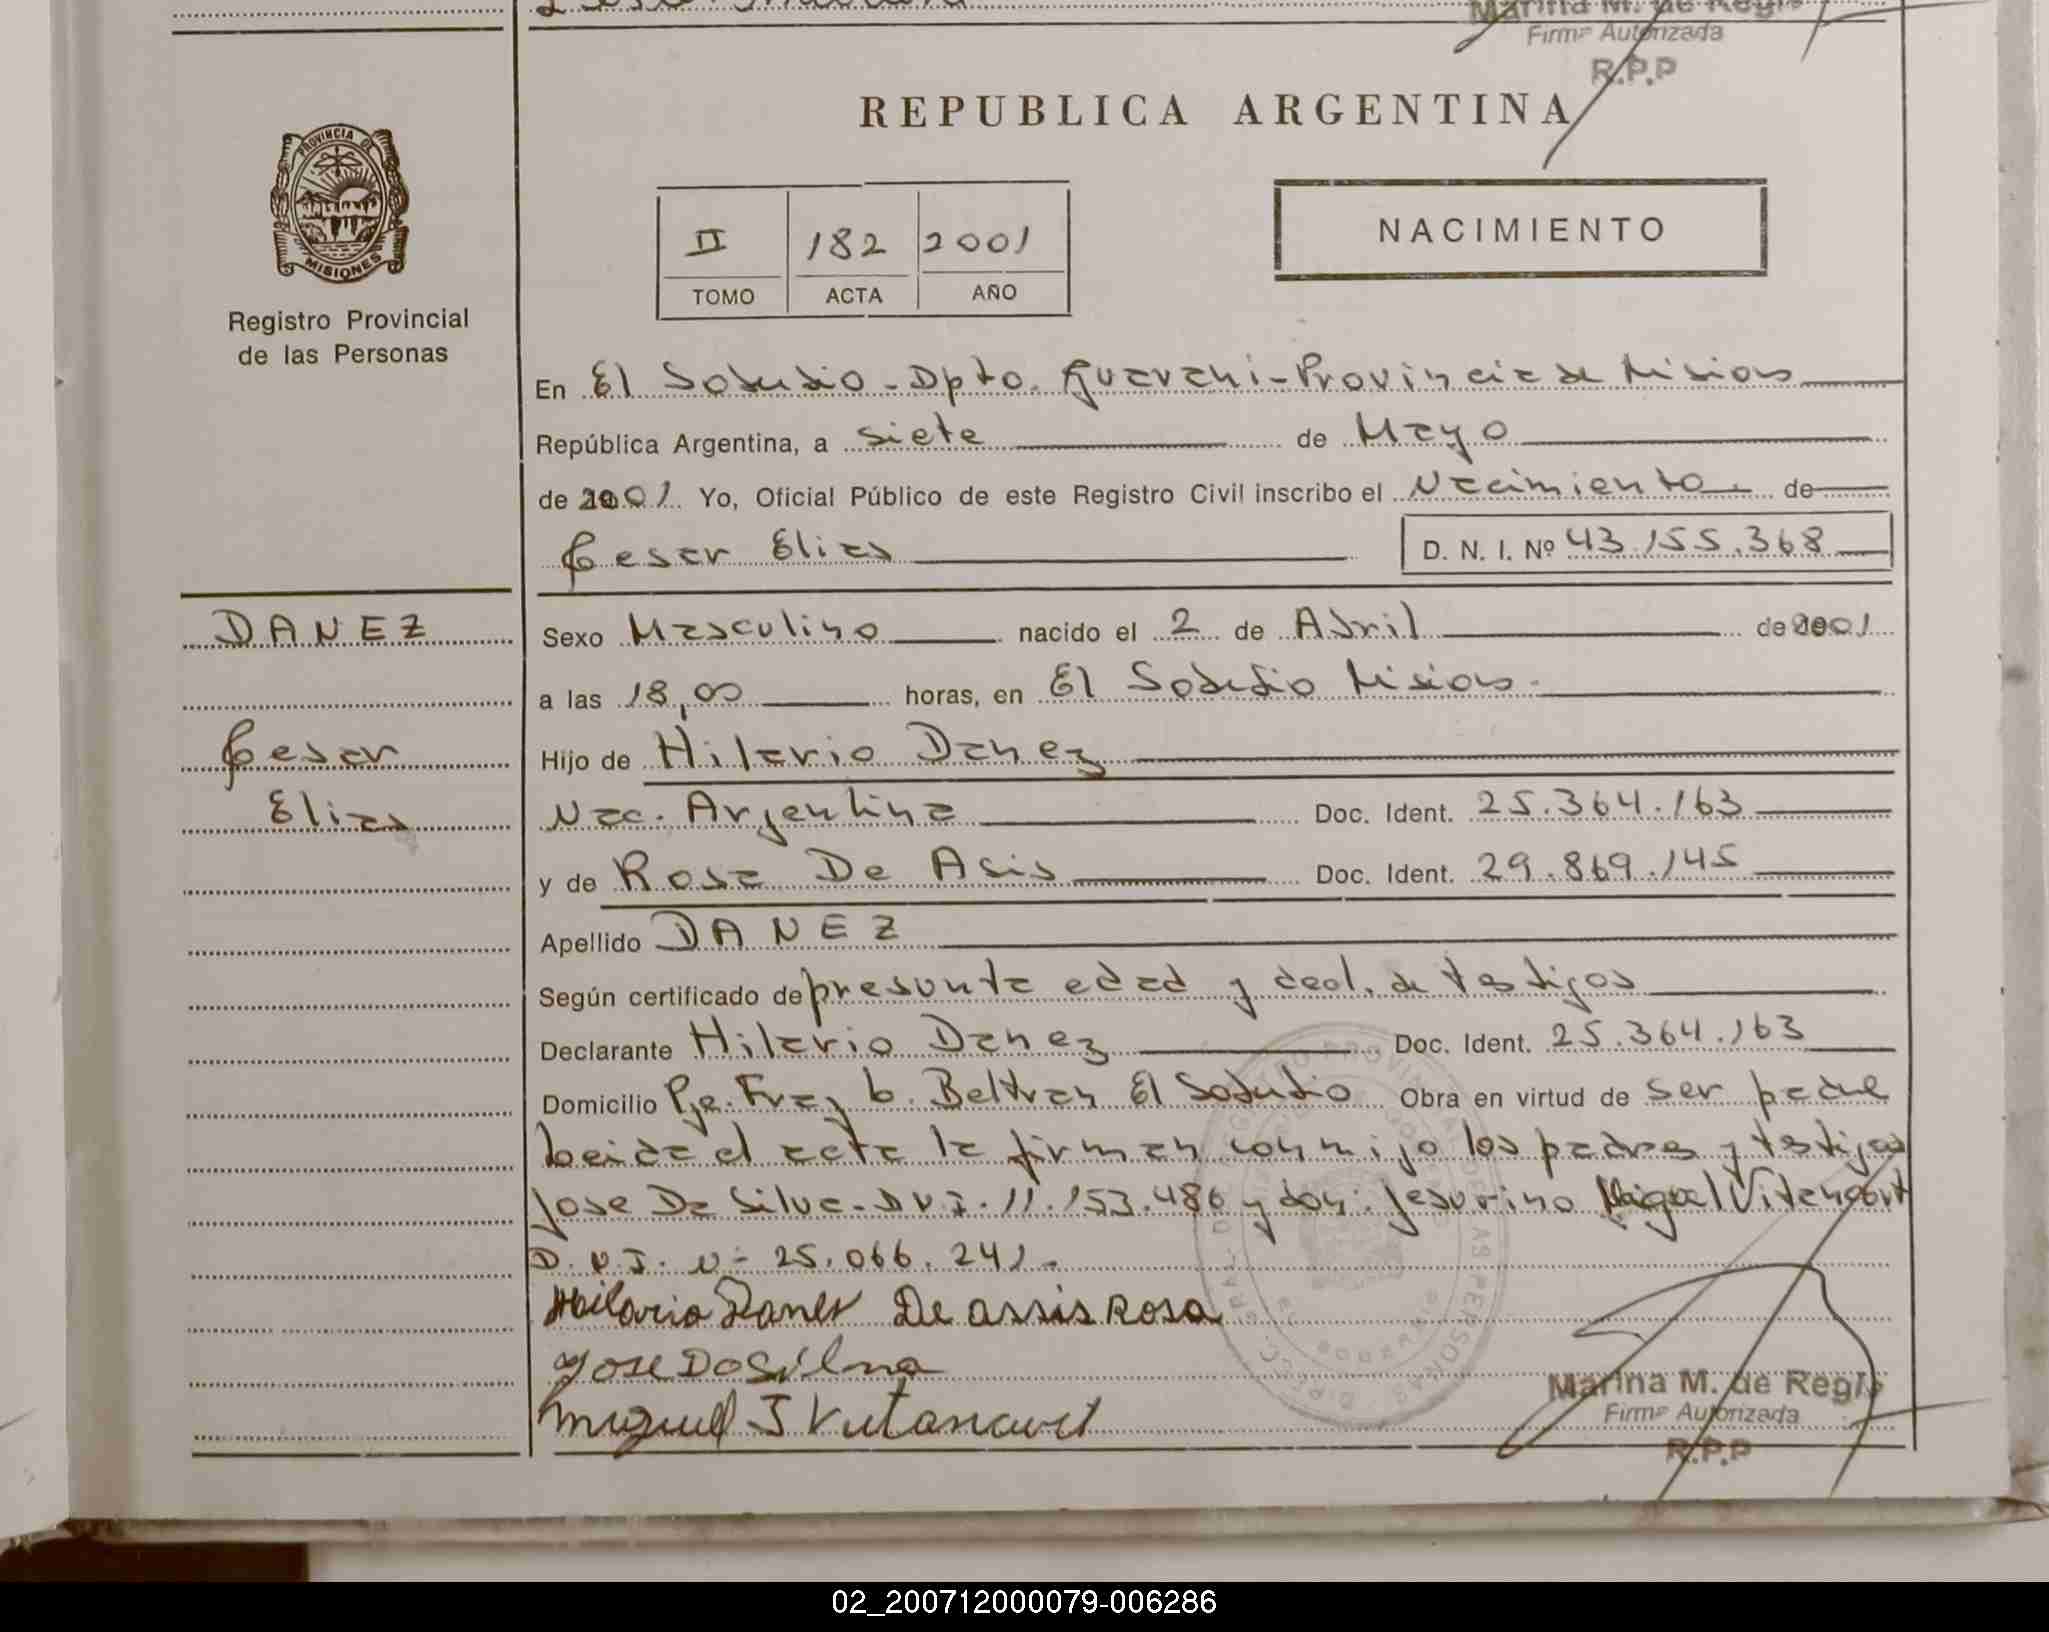 Marina M. de Regis
Firma Autorizada
R.P.P
REPUBLICA ARGENTINA
PROVINCIA DE
MISIONES
Registro Provincial
de las Personas
II 182 2001
TOMO ACTA AÑO
NACIMIENTO
En El Soberbio - Dpto. Guarani - Provincia de Misiones
República Argentina, a siete de Mayo
de 2001 Yo, Oficial Público de este Registro Civil inscribo el Nacimiento de
Cesar Elias D. N. I. Nº 43.155.368
DANEZ
Cesar
Elias
Sexo Masculino nacido el 2 de Abril de 2001
a las 18,00 horas, en El Soberbio Misiones.
Hijo de Hilario Danez
Nac. Argentina Doc. Ident. 25.364.163
y de Rosa De Asis Doc. Ident. 29.869.145
Apellido DANEZ
Según certificado de presunta edad y decl. de testigos
Declarante Hilario Danez Doc. Ident. 25.364.163
Domicilio Pje. Fray L. Beltran El Soberbio Obra en virtud de ser padre
Leida el acta la firman conmijo los padres y testigos
Jose Da Silva - DNI. 11.153.486 y don: Jesurino Miguel Vitencort
D.N.I. N- 25.066.241.
Hilario Danez De assis Rosa
Jose Da Silva
Miguel J
Marina M. de Regis
Firma Autorizada
R.P.P
02_200712000079-006286